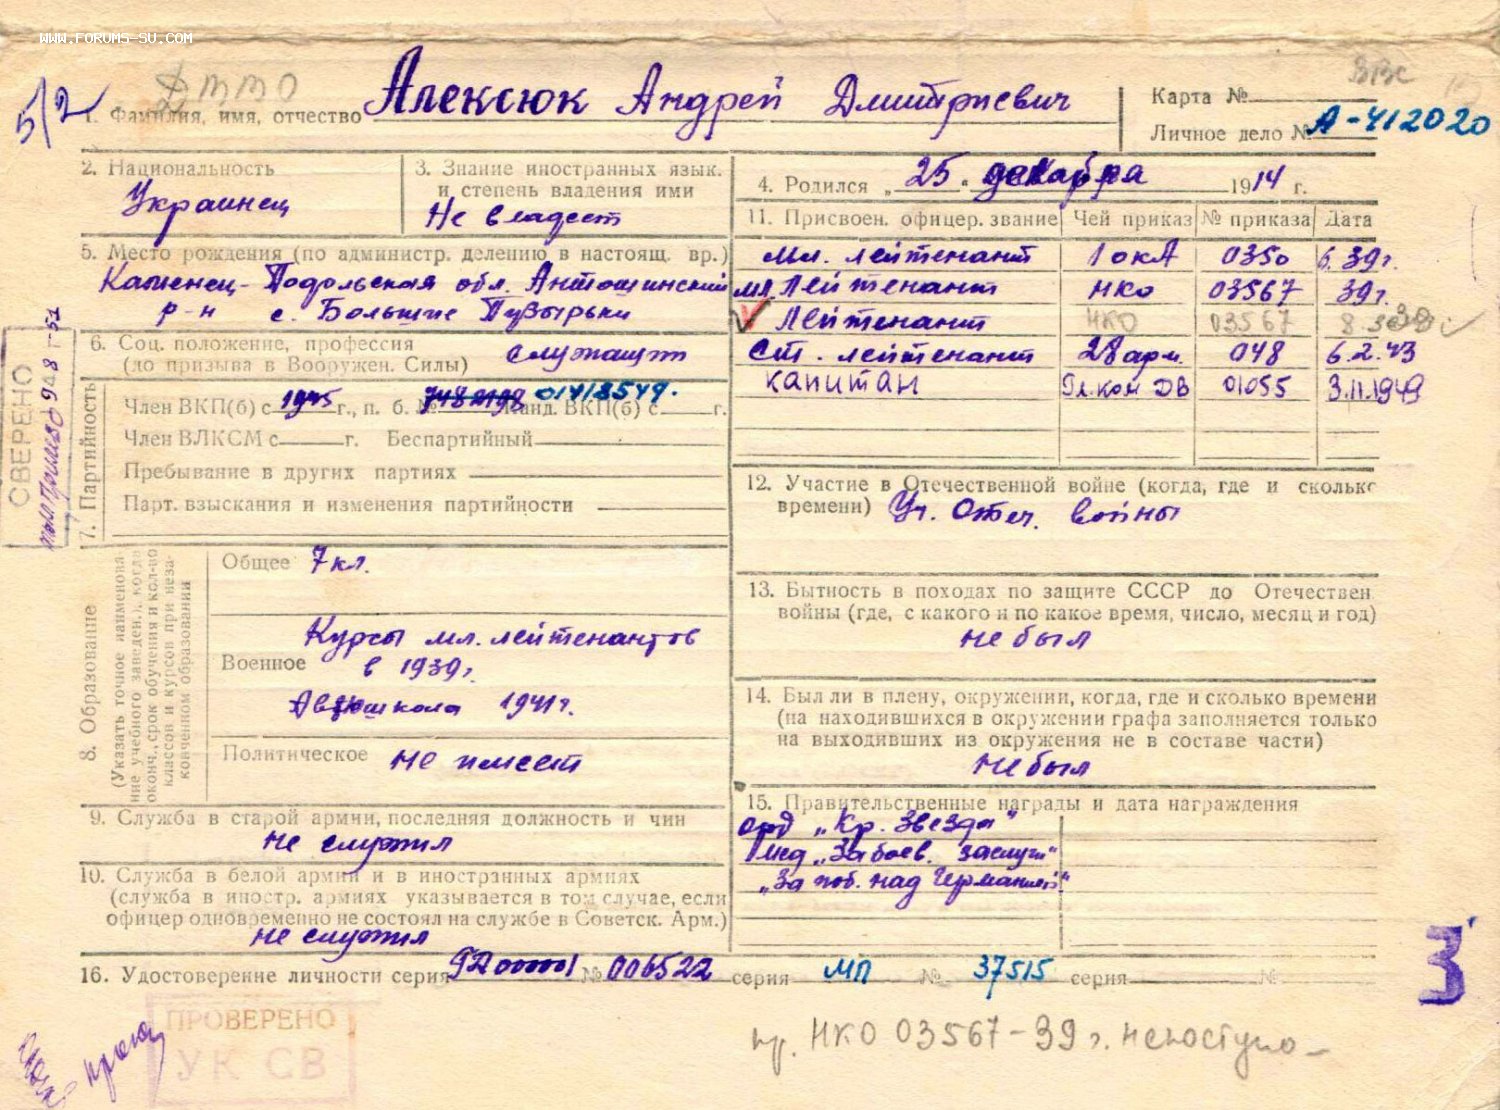 WWW.FORUMS-SU.COM
5/2
ВВС
1. Фамилия, имя, отчество Алексюк Андрей Дмитриевич
Карта №
Личное дело № А-412020
2. Национальность
Украинец
3. Знание иностранных язык.
и степень владения ими
Не владеет
4. Родился „ 25 “ декабря 1914 г.
5. Место рождения (по администр. делению в настоящ. вр.)
Каменец-Подольская обл. Антошинский
р-н с. Большие Пузырьки
6. Соц. положение, профессия
(до призыва в Вооружен. Силы) служащий
7. Партийность
Член ВКП(б) с 1945 г., п. б. № 01418549. канд. ВКП(б) с г.
Член ВЛКСМ с г. Беспартийный
Пребывание в других партиях
Парт. взыскания и изменения партийности
СВЕРЕНО
8. Образование
(Указать точное наименова
ние учебного заведен., когда
оконч., срок обучения и кол-во
классов и курсов при неза-
конченном образовании
Общее 7 кл.
Военное
Курсы мл. лейтенантов
в 1939 г.
Авиашкола 1941 г.
Политическое не имеет
9. Служба в старой армии, последняя должность и чин
не служил
10. Служба в белой армии и в иностранных армиях
(служба в иностр. армиях указывается в том случае, если
офицер одновременно не состоял на службе в Советск. Арм.)
не служил
11. Присвоен. офицер. звание Чей приказ № приказа Дата
мл. лейтенант 1 окА 0350 6.39г.
мл. Лейтенант НКО 03567 39г.
Лейтенант НКО 03567
ст. лейтенант 28 арм. 048 6.2.43
капитан Гл.ком ДВ 01055 3.11.1949
12. Участие в Отечественной войне (когда, где и сколько
времени) Уч. Отеч. войны
13. Бытность в походах по защите СССР до Отечествен
войны (где, с какого и по какое время, число, месяц и год)
не был
14. Был ли в плену, окружении, когда, где и сколько времени
(на находившихся в окружении графа заполняется только
на выходивших из окружения не в составе части)
не был
15. Правительственные награды и дата награждения
орд „Кр. Звезда“
мед „За боев. заслуги“
„За поб. над Германией“
16. Удостоверение личности серия ГД00001 № 006522 серия МП № 37515 серия №
3
ПРОВЕРЕНО
УК СВ
пр. НКО 03567-39 г. не поступ